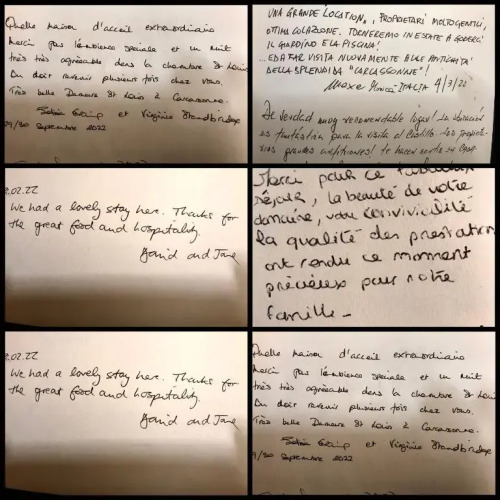 Quelle maison d'accueil extraordinaire
Merci pas l'ambience speciale et un nuit
très très agréable dans la chambre St Louis
On doit revenir plusieurs fois chez vous.
Très belle Demeure St Louis à Carcassonne.
et Virginie
29/30 Septembre 2022
UNA GRANDE LOCATION,, PROPRIETARI MOLTO GENTILI,
OTTIMA COLAZIONE. TORNEREMO IN ESTATE A GODERCI
IL GIARDINO E LA PISCINA!
... ED A FAR VISITA NUOVAMENTE ALLE ANTICHITA'
DELLA SPLENDIDA "CARCASSONNE!
ITALIA 4/3/22
De verdad muy recomendable lugar! La ubicación
es fantástica para la visita al Castillo. Los propieta-
rios grandes anfitriones! te hacen sentir su casa
.02.22
We had a lovely stay here. Thanks for
the great food and hospitality.
David and Jane
Merci pour ce
séjour, la beauté de votre
domaine, votre convivialité
la qualité des prestation
ont rendu ce moment
précieux pour notre
famille -
.02.22
We had a lovely stay here. Thanks for
the great food and hospitality.
David and Jane
Quelle maison d'accueil extraordinaire
Merci pas l'ambience speciale et un nuit
très très agréable dans la chambre St
On doit revenir plusieurs fois chez vous.
Très belle Demeure St Louis à Carcassonne.
et Virginie
9/30 Septembre 2022